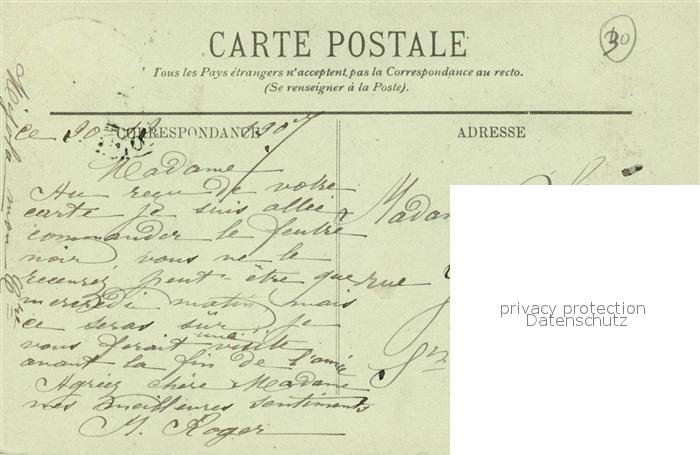 30
CARTE POSTALE
Tous les Pays étrangers n'acceptent pas la Correspondance au recto.
(Se renseigner à la Poste).
CORRESPONDANCE
ADRESSE
ce 30 1907
Madame
Au reçu de votre
carte je suis allée
commander le feutre
noir vous ne le
recevrez peut-être que
mercredi matin mais
ce seras sûr, je
vous ferait une visite
avant la fin de l'année
Agréez chère Madame
mes meilleures sentiments
M. Roger
Madam
rue
privacy protection
Datenschutz